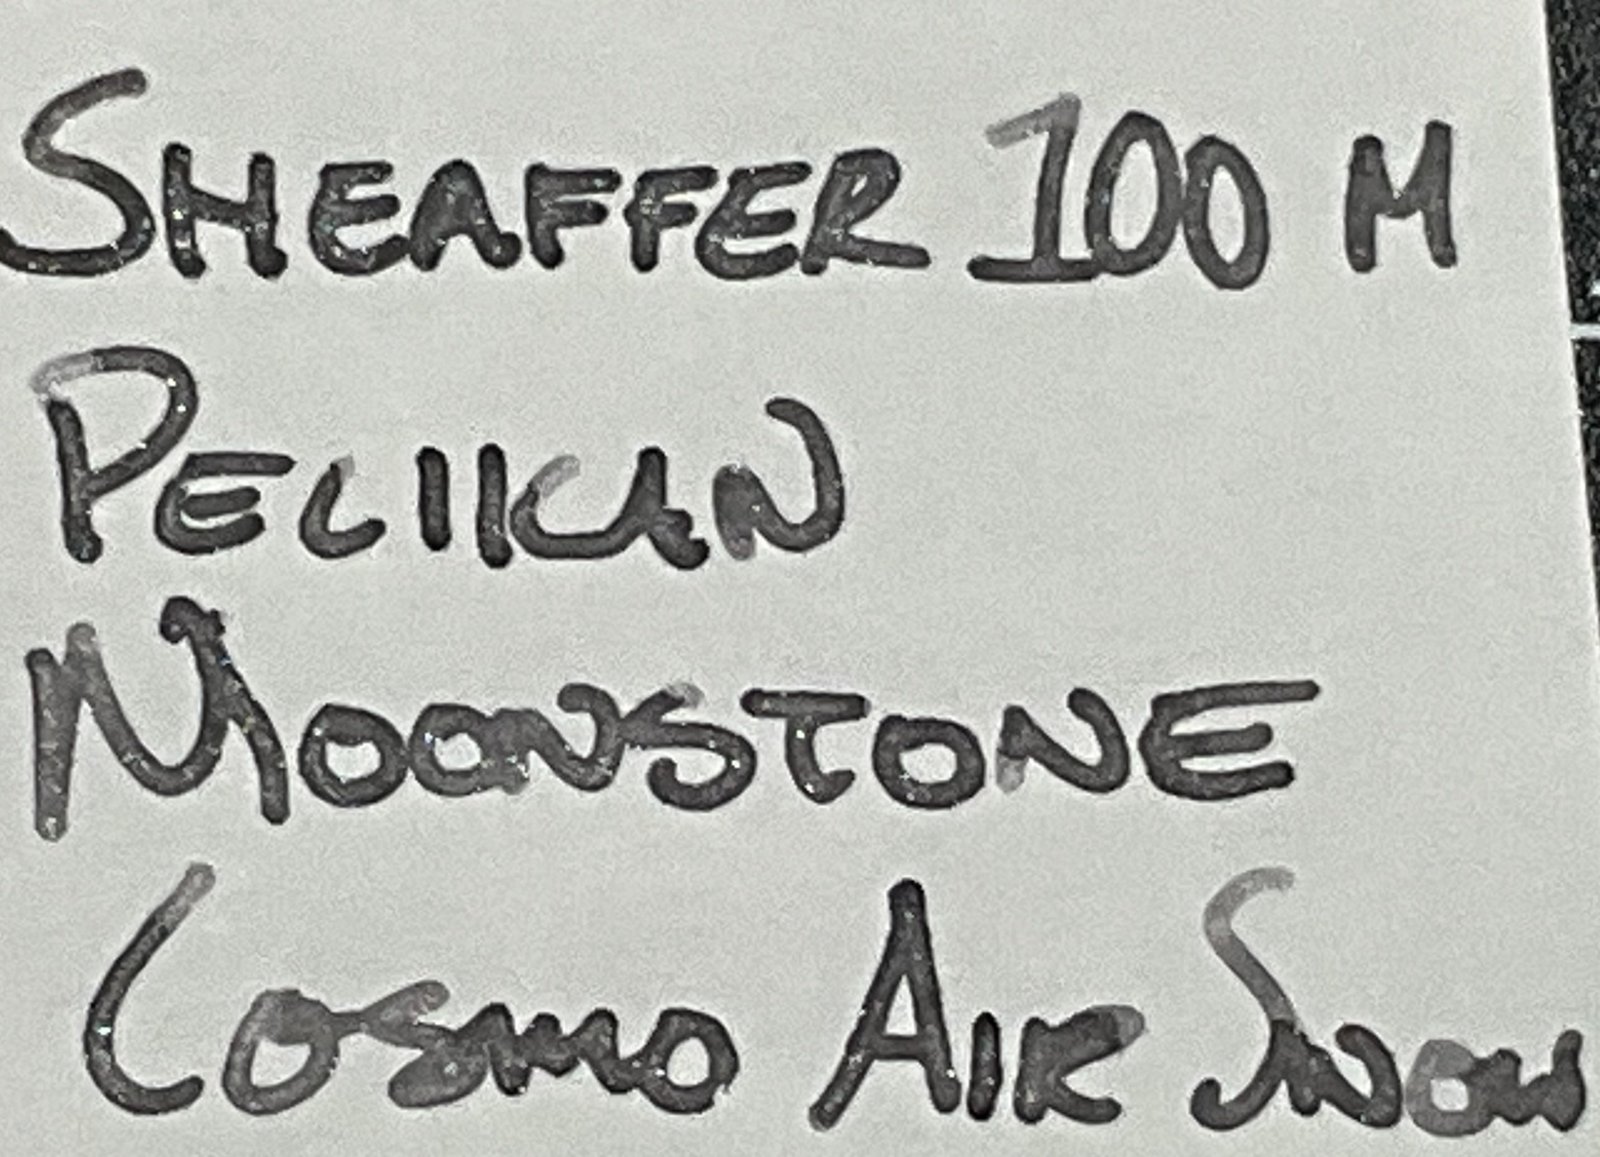 SHEAFFER 100 M
PELIKAN
MOONSTONE
COSMO AIR SNOW